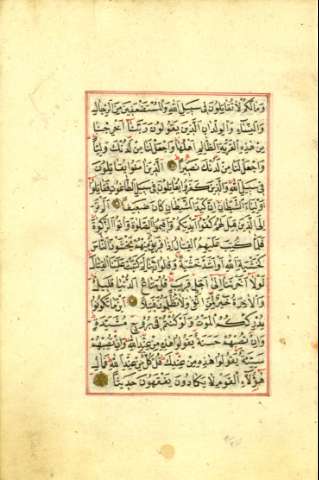 وَمَا لَكُمْ لَا تُقَاتِلُونَ فِي سَبِيلِ اللَّهِ وَالْمُسْتَضْعَفِينَ مِنَ الرِّجَالِ
وَالنِّسَاءِ وَالْوِلْدَانِ الَّذِينَ يَقُولُونَ رَبَّنَا أَخْرِجْنَا
مِنْ هَذِهِ الْقَرْيَةِ الظَّالِمِ أَهْلُهَا وَاجْعَلْ لَنَا مِنْ لَدُنْكَ وَلِيًّا
وَاجْعَلْ لَنَا مِنْ لَدُنْكَ نَصِيرًا الَّذِينَ آمَنُوا يُقَاتِلُونَ
فِي سَبِيلِ اللَّهِ وَالَّذِينَ كَفَرُوا يُقَاتِلُونَ فِي سَبِيلِ الطَّاغُوتِ فَقَاتِلُوا
أَوْلِيَاءَ الشَّيْطَانِ إِنَّ كَيْدَ الشَّيْطَانِ كَانَ ضَعِيفًا أَلَمْ تَرَ
إِلَى الَّذِينَ قِيلَ لَهُمْ كُفُّوا أَيْدِيَكُمْ وَأَقِيمُوا الصَّلَاةَ وَآتُوا الزَّكَاةَ
فَلَمَّا كُتِبَ عَلَيْهِمُ الْقِتَالُ إِذَا فَرِيقٌ مِنْهُمْ يَخْشَوْنَ النَّاسَ
كَخَشْيَةِ اللَّهِ أَوْ أَشَدَّ خَشْيَةً وَقَالُوا رَبَّنَا لِمَ كَتَبْتَ عَلَيْنَا الْقِتَالَ
لَوْلَا أَخَّرْتَنَا إِلَى أَجَلٍ قَرِيبٍ قُلْ مَتَاعُ الدُّنْيَا قَلِيلٌ
وَالْآخِرَةُ خَيْرٌ لِمَنِ اتَّقَى وَلَا تُظْلَمُونَ فَتِيلًا أَيْنَمَا تَكُونُوا
يُدْرِكْكُمُ الْمَوْتُ وَلَوْ كُنْتُمْ فِي بُرُوجٍ مُشَيَّدَةٍ
وَإِنْ تُصِبْهُمْ حَسَنَةٌ يَقُولُوا هَذِهِ مِنْ عِنْدِ اللَّهِ وَإِنْ تُصِبْهُمْ
سَيِّئَةٌ يَقُولُوا هَذِهِ مِنْ عِنْدِكَ قُلْ كُلٌّ مِنْ عِنْدِ اللَّهِ فَمَالِ
هَؤُلَاءِ الْقَوْمِ لَا يَكَادُونَ يَفْقَهُونَ حَدِيثًا